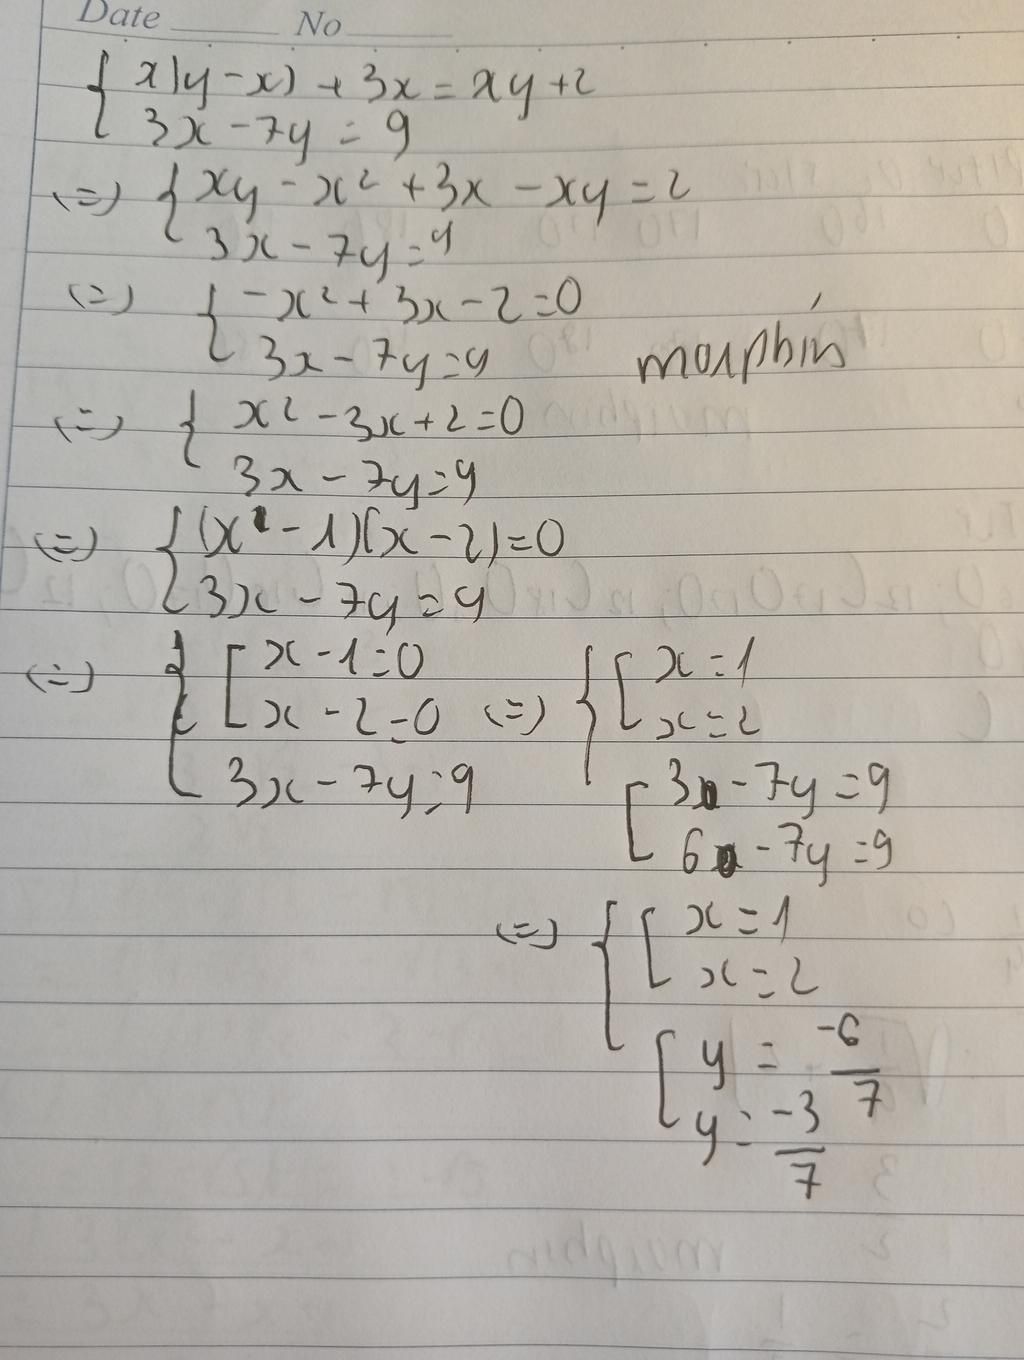 Date ______ No ______
{ x(y - x) + 3x = xy + 2
3x - 7y = 9
(=) { xy - x² + 3x - xy = 2
3x - 7y = 9
(=) { -x² + 3x - 2 = 0
3x - 7y = 9 morphin
(=) { x² - 3x + 2 = 0
3x - 7y = 9
(=) { (x - 1)(x - 2) = 0
3x - 7y = 9
(=) { [ x - 1 = 0
x - 2 = 0
3x - 7y = 9
(=) { [ x = 1
x = 2
[ 3 - 7y = 9
6 - 7y = 9
(=) { [ x = 1
x = 2
[ y = -6/7
y = -3/7